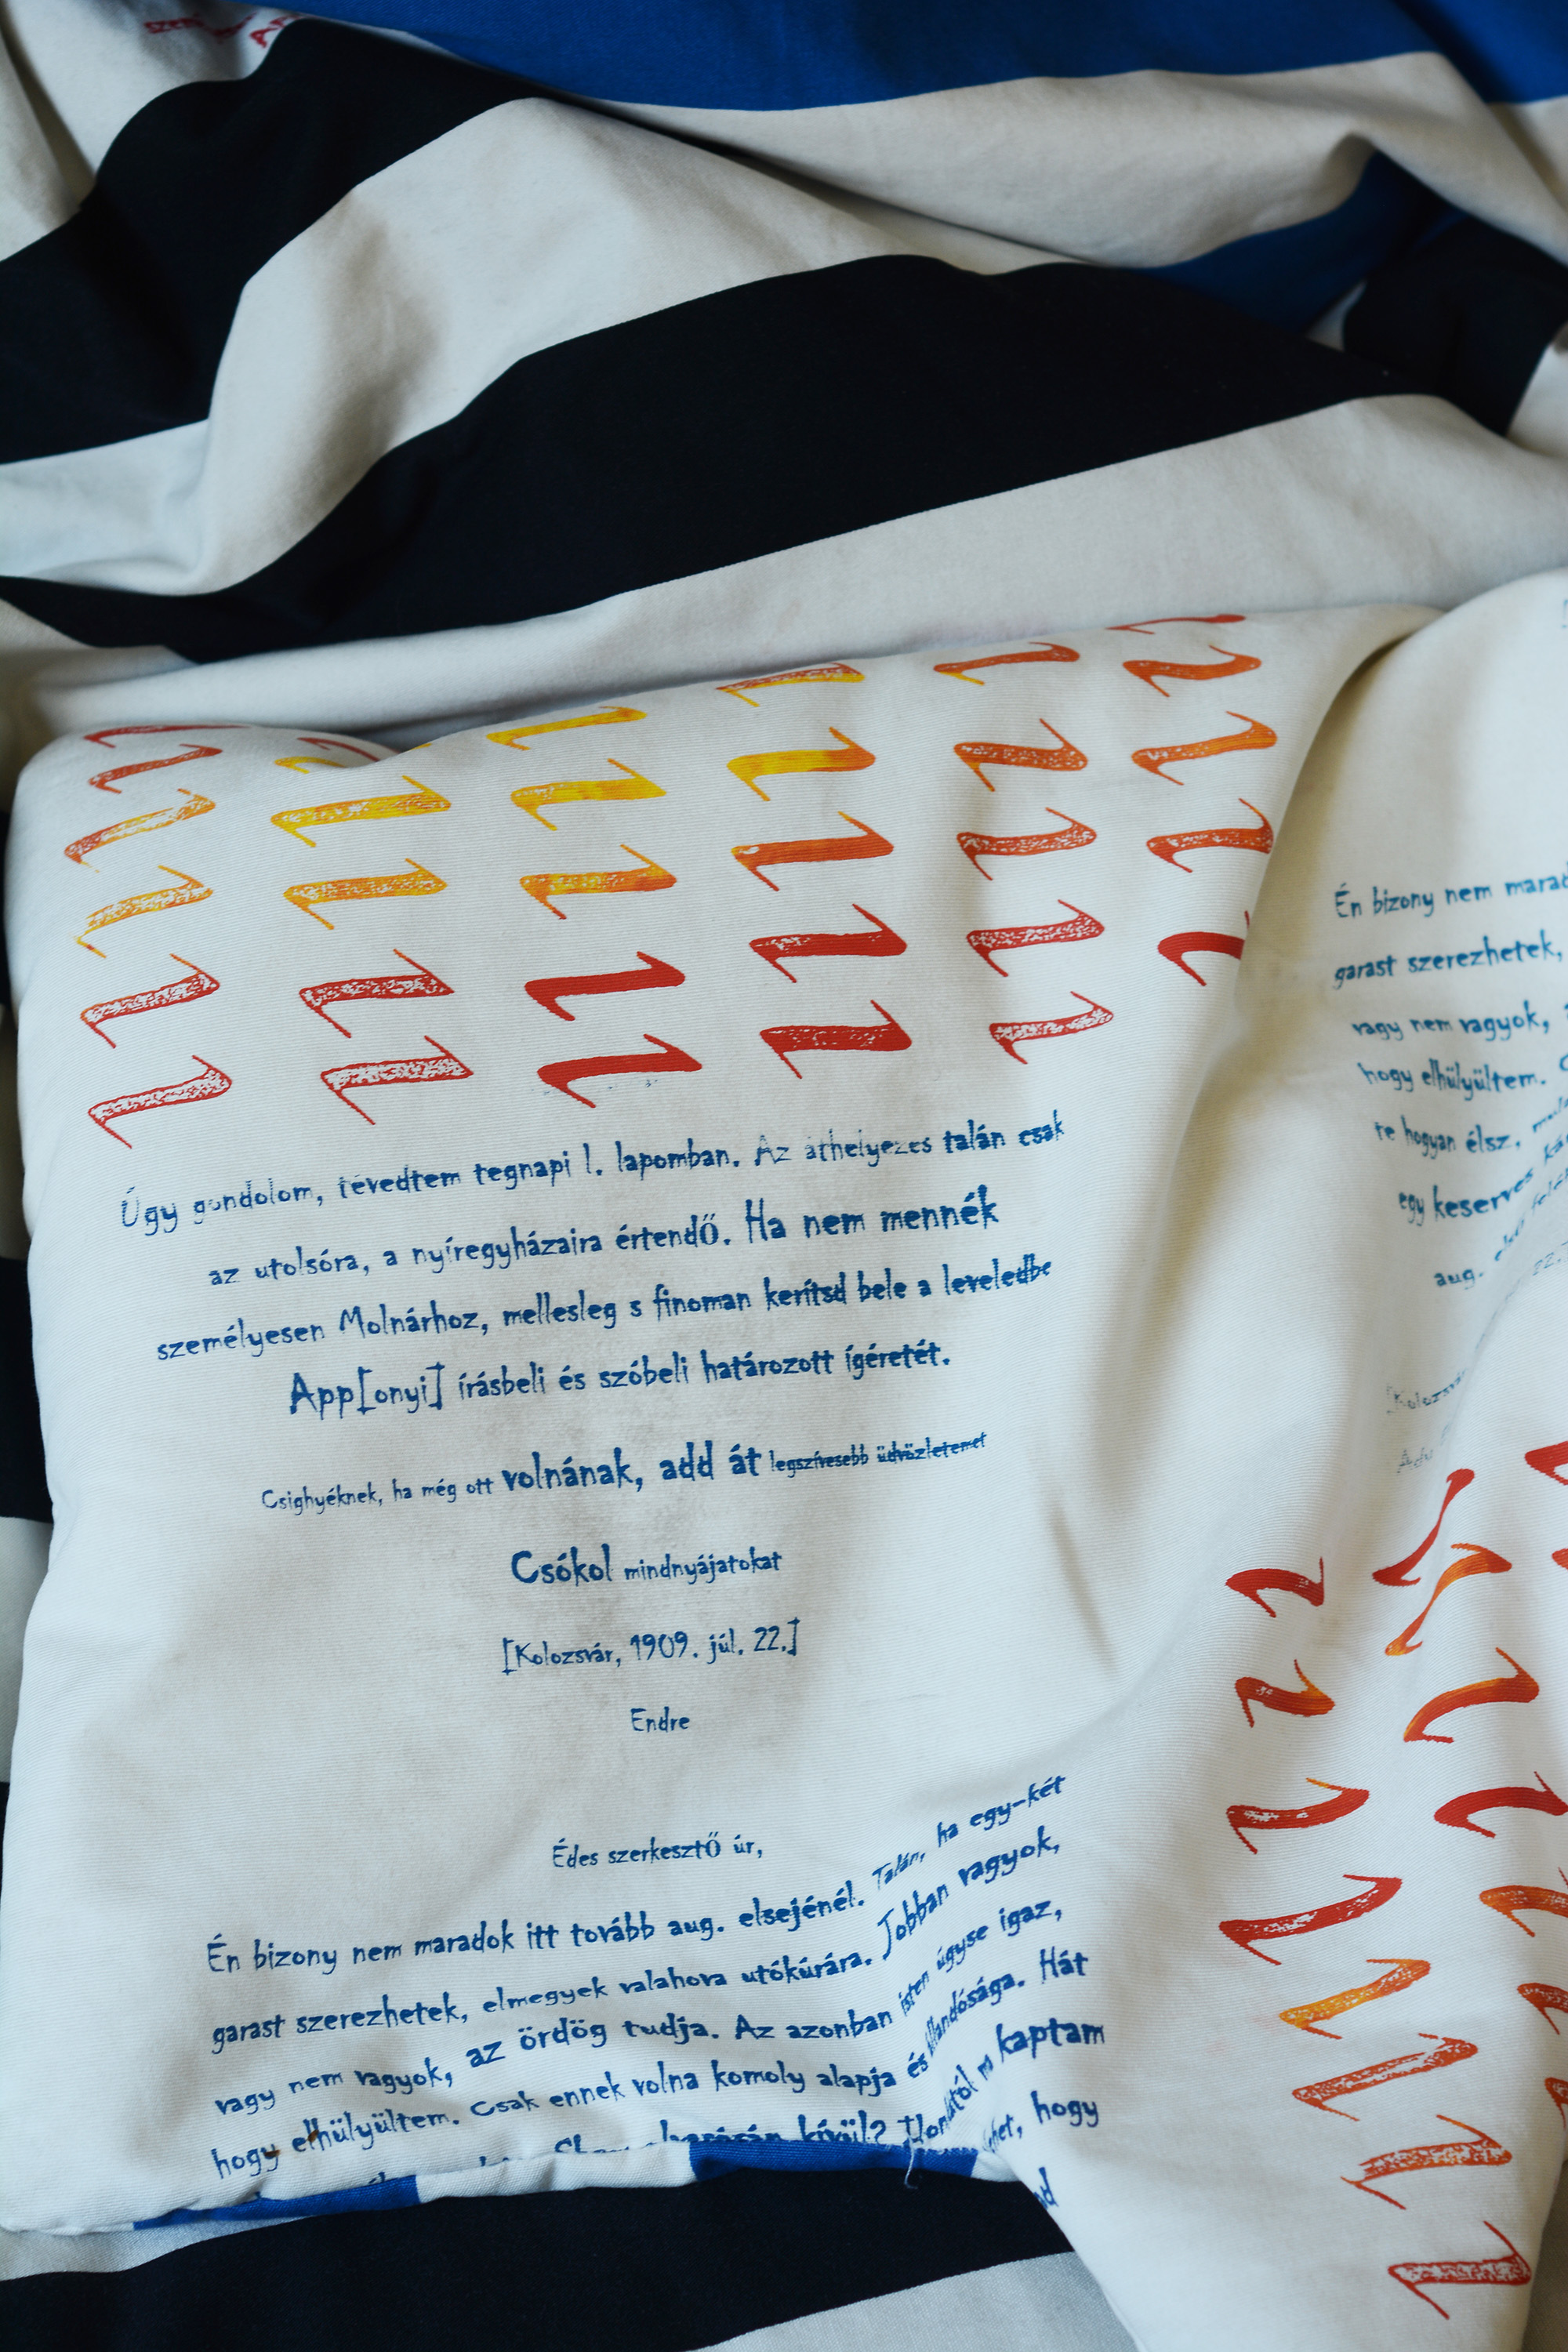 Úgy gondolom, tévedtem tegnapi l. lapomban. Az áthelyezés talán csak
az utolsóra, a nyíregyházaira értendő. Ha nem mennék
személyesen Molnárhoz, mellesleg s finoman kerítsd bele a leveledbe
App[onyi] írásbeli és szóbeli határozott ígéretét.
Csighyéknek, ha még ott volnának, add át legszívesebb üdvözletemet
Csókol mindnyájatokat
[Kolozsvár, 1909. júl. 22.]
Endre
Édes szerkesztő úr,
Én bizony nem maradok itt tovább aug. elsejénél. Talán, ha egy-két
garast szerezhetek, elmegyek valahova utókúrára. Jobban vagyok,
vagy nem vagyok, az ördög tudja. Az azonban isten úgyse igaz,
hogy elhülyültem. Csak ennek volna komoly alapja és állandósága. Hát
kívül? kaptam
hogy
Én bizony nem
garast szerezhetek,
vagy nem vagyok,
hogy elhülyültem.
te hogyan élsz,
egy keserves
aug.